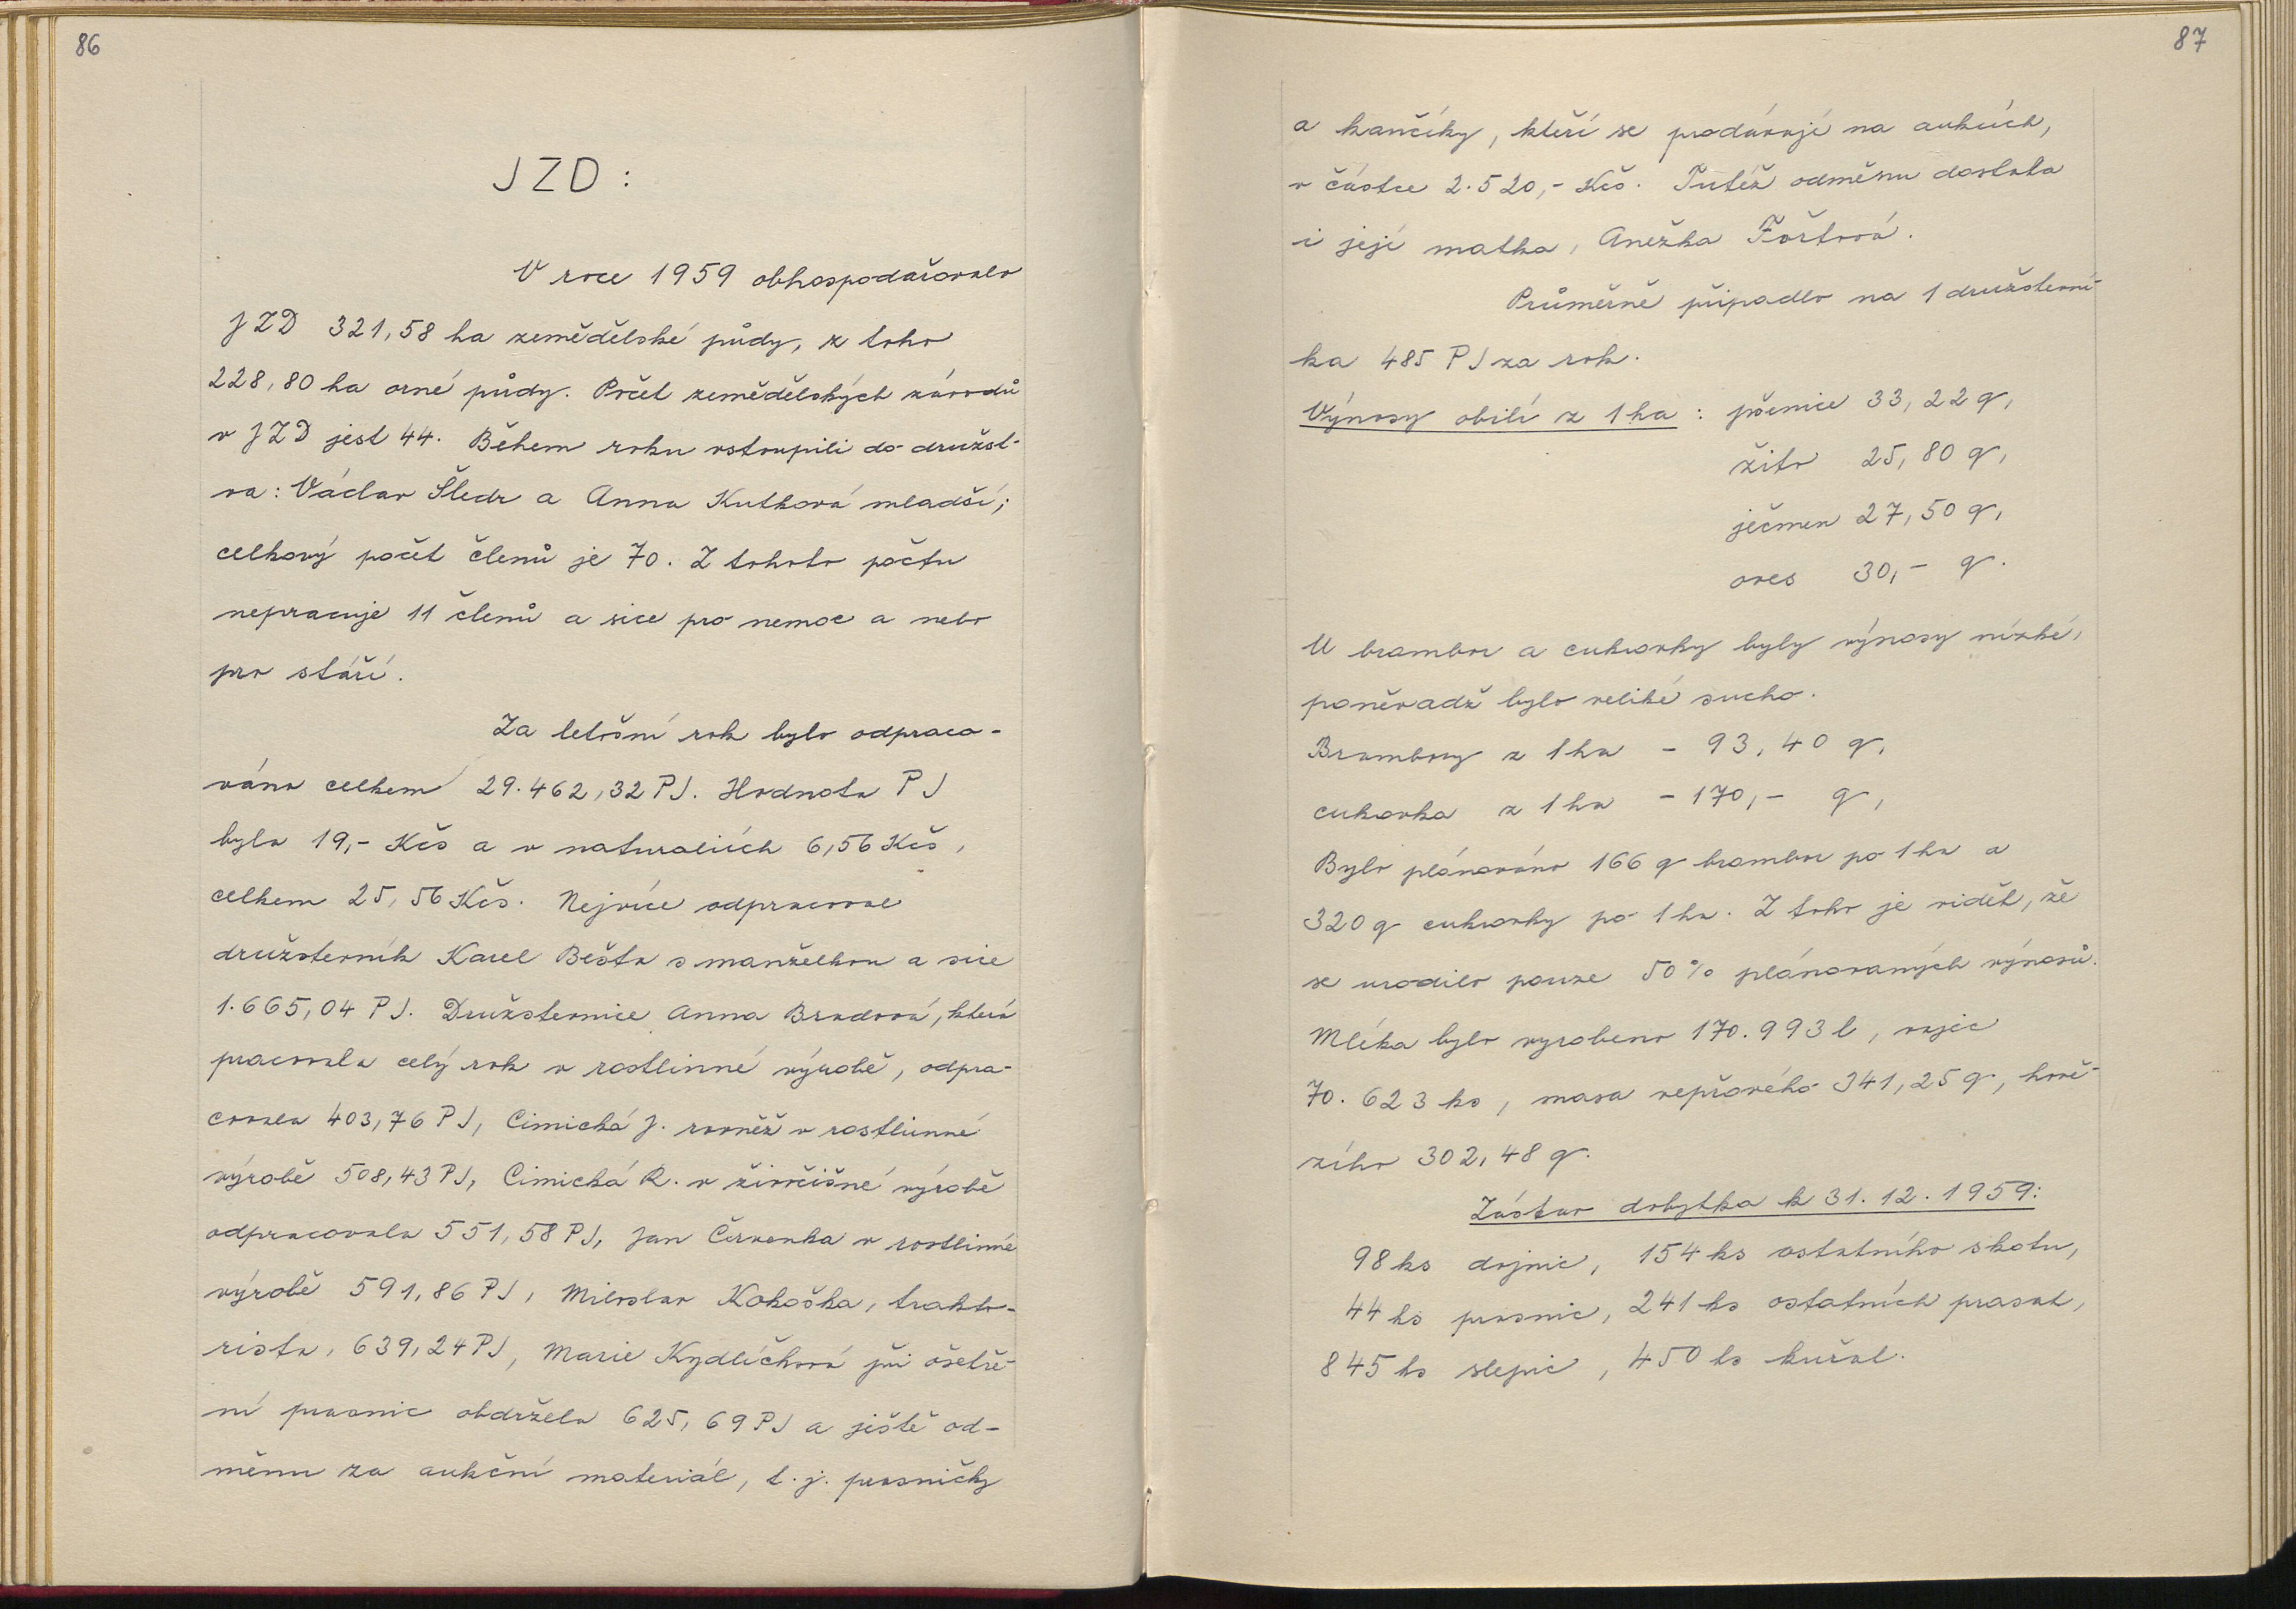 86
JZD:
V roce 1959 obhospodařovalo
JZD 321,58 ha zemědělské půdy, z toho
228,80 ha orné půdy. Počet zemědělských závodů
v JZD jest 44. Během roku vstoupili do družst-
va: Václav Šledr a Anna Kutková mladší;
celkový počet členů je 70. Z tohoto počtu
nepracuje 11 členů a sice pro nemoc a nebo
pro stáří.
Za letošní rok bylo odpraco-
váno celkem 29.462,32 PJ. Hodnota PJ
byla 19,- Kčs a v naturaliích 6,56 Kčs,
celkem 25,56 Kčs. Nejvíce odpracoval
družstevník Karel Bešta s manželkou a sice
1.665,04 PJ. Družstevnice Anna Bradová, která
pracovala celý rok v rostlinné výrobě, odpra-
covala 403,76 PJ, Cimická J. rovněž v rostlinné
výrobě 508,43 PJ, Cimická R. v živočišné výrobě
odpracovala 551,58 PJ, Jan Červenka v rostlinné
výrobě 591,86 PJ, Miloslav Kokoška, trakto-
rista, 639,24 PJ, Marie Kydlíčková při ošetře-
ní prasnic obdržela 625,69 PJ a ještě od-
měnu za aukční materiál, t.j. prasničky
87
a kančíky, kteří se prodávají na aukcích,
v částce 2.520,- Kčs. Tutéž odměnu dostala
i její matka, Anežka Fořtová.
Průměrně připadlo na 1 družstevní-
ka 485 PJ za rok.
Výnosy obilí z 1 ha: pšenice 33,22 q,
žito 25,80 q,
ječmen 27,50 q,
oves 30,- q.
U brambor a cukrovky byly výnosy nízké,
poněvadž bylo veliké sucho.
Brambory z 1 ha - 93,40 q,
cukrovka z 1 ha - 170,- q,
Bylo plánováno 166 q brambor po 1 ha a
320 q cukrovky po 1 ha. Z toho je vidět, že
se urodilo pouze 50% plánovaných výnosů.
Mléka bylo vyrobeno 170.993 l, vajec
70.623 ks, masa vepřového 341,25 q, hově-
zího 302,48 q.
Zástav dobytka k 31.12.1959:
98 ks dojnic, 154 ks ostatního skotu,
44 ks prasnic, 241 ks ostatních prasat,
845 ks slepic, 450 ks kuřat.